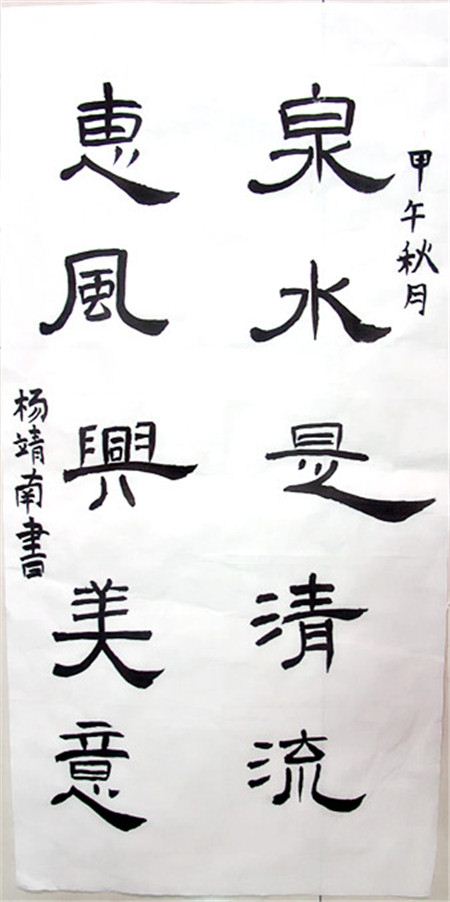 甲午秋月
泉水是清流
惠風興美意
杨靖南書